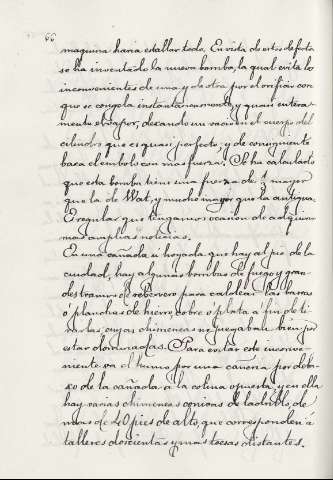 66
maquina haria estallar todo. En vista de estos defectos
se ha inventado la nueva bomba, la qual evita los
inconvenientes de una y de otra por el orificio con
que se congela instantaneamente, y quasi entera-
mente el vapor, dexando un vacio en el cuerpo del
cilindro que es quasi perfecto; y de consiguiente
baxa el embolo con mas fuerza. Se ha calculado
que esta bomba tiene una fuerza de mayor
que la de Wat, y mucho mayor que la antigua.
Es regular que tengamos ocasion de adquirir
mas amplias noticias.
En una cañada ú hoyada que hay al pie de la
ciudad, hay algunas bombas de fuego y gran-
des tramos de reberveros para calentar las barras
o planchas de hierro, cobre o plata á fin de ti-
rarlas, cuyas chimeneas no jugaban bien por
estar dominadas. Para evitar este inconve-
niente va el humo por una cañeria por deba-
xo de la cañada á la colina opuesta, y en ella
hay varias chimeneas conicas de ladrillo, de
mas de 40 pies de alto, que corresponden á
talleres doscientas y mas toesas distantes.